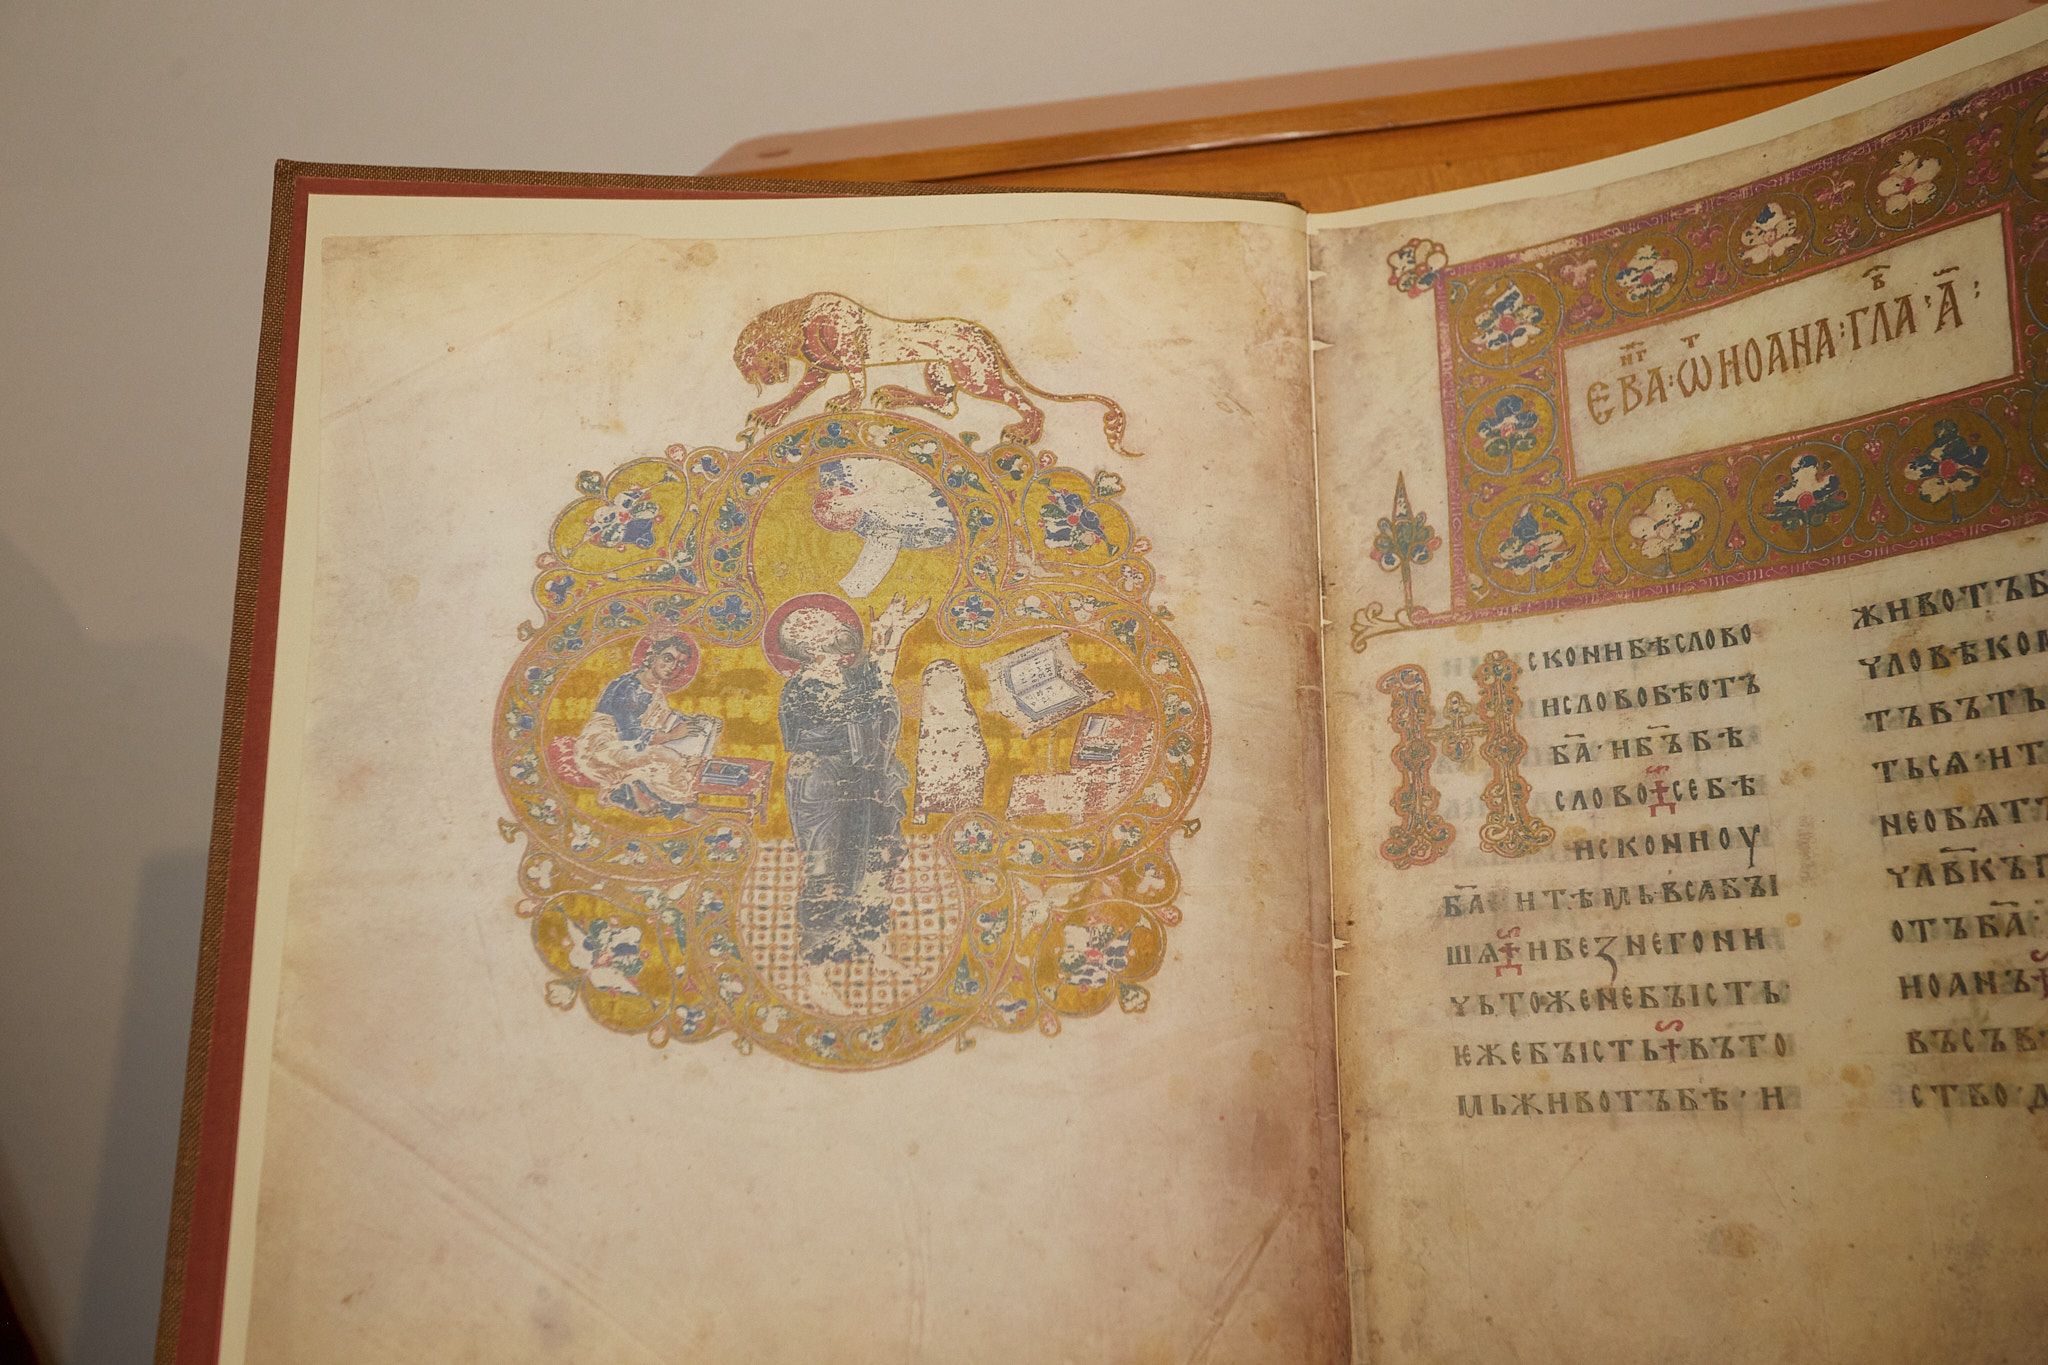 ЕВАНГ:ѠТ ИОАНА:ГЛАВ҃:А҃:
Искони бѣ слово
и слово бѣ отъ
б҃а · и б҃ъ бѣ
слово се бѣ
искони оу
б҃а и тѣмь вся бꙑ
шѧ и без него ни
чьтоже не бꙑсть
ѥже бꙑсть въ то
мь животъ бѣ · и
животъ б
чловѣком
тъ въ ть
тьсѧ · и т
не обѧтъ
чл҃вкъ п
отъ б҃а
Иоанъ
въ съв
ство д